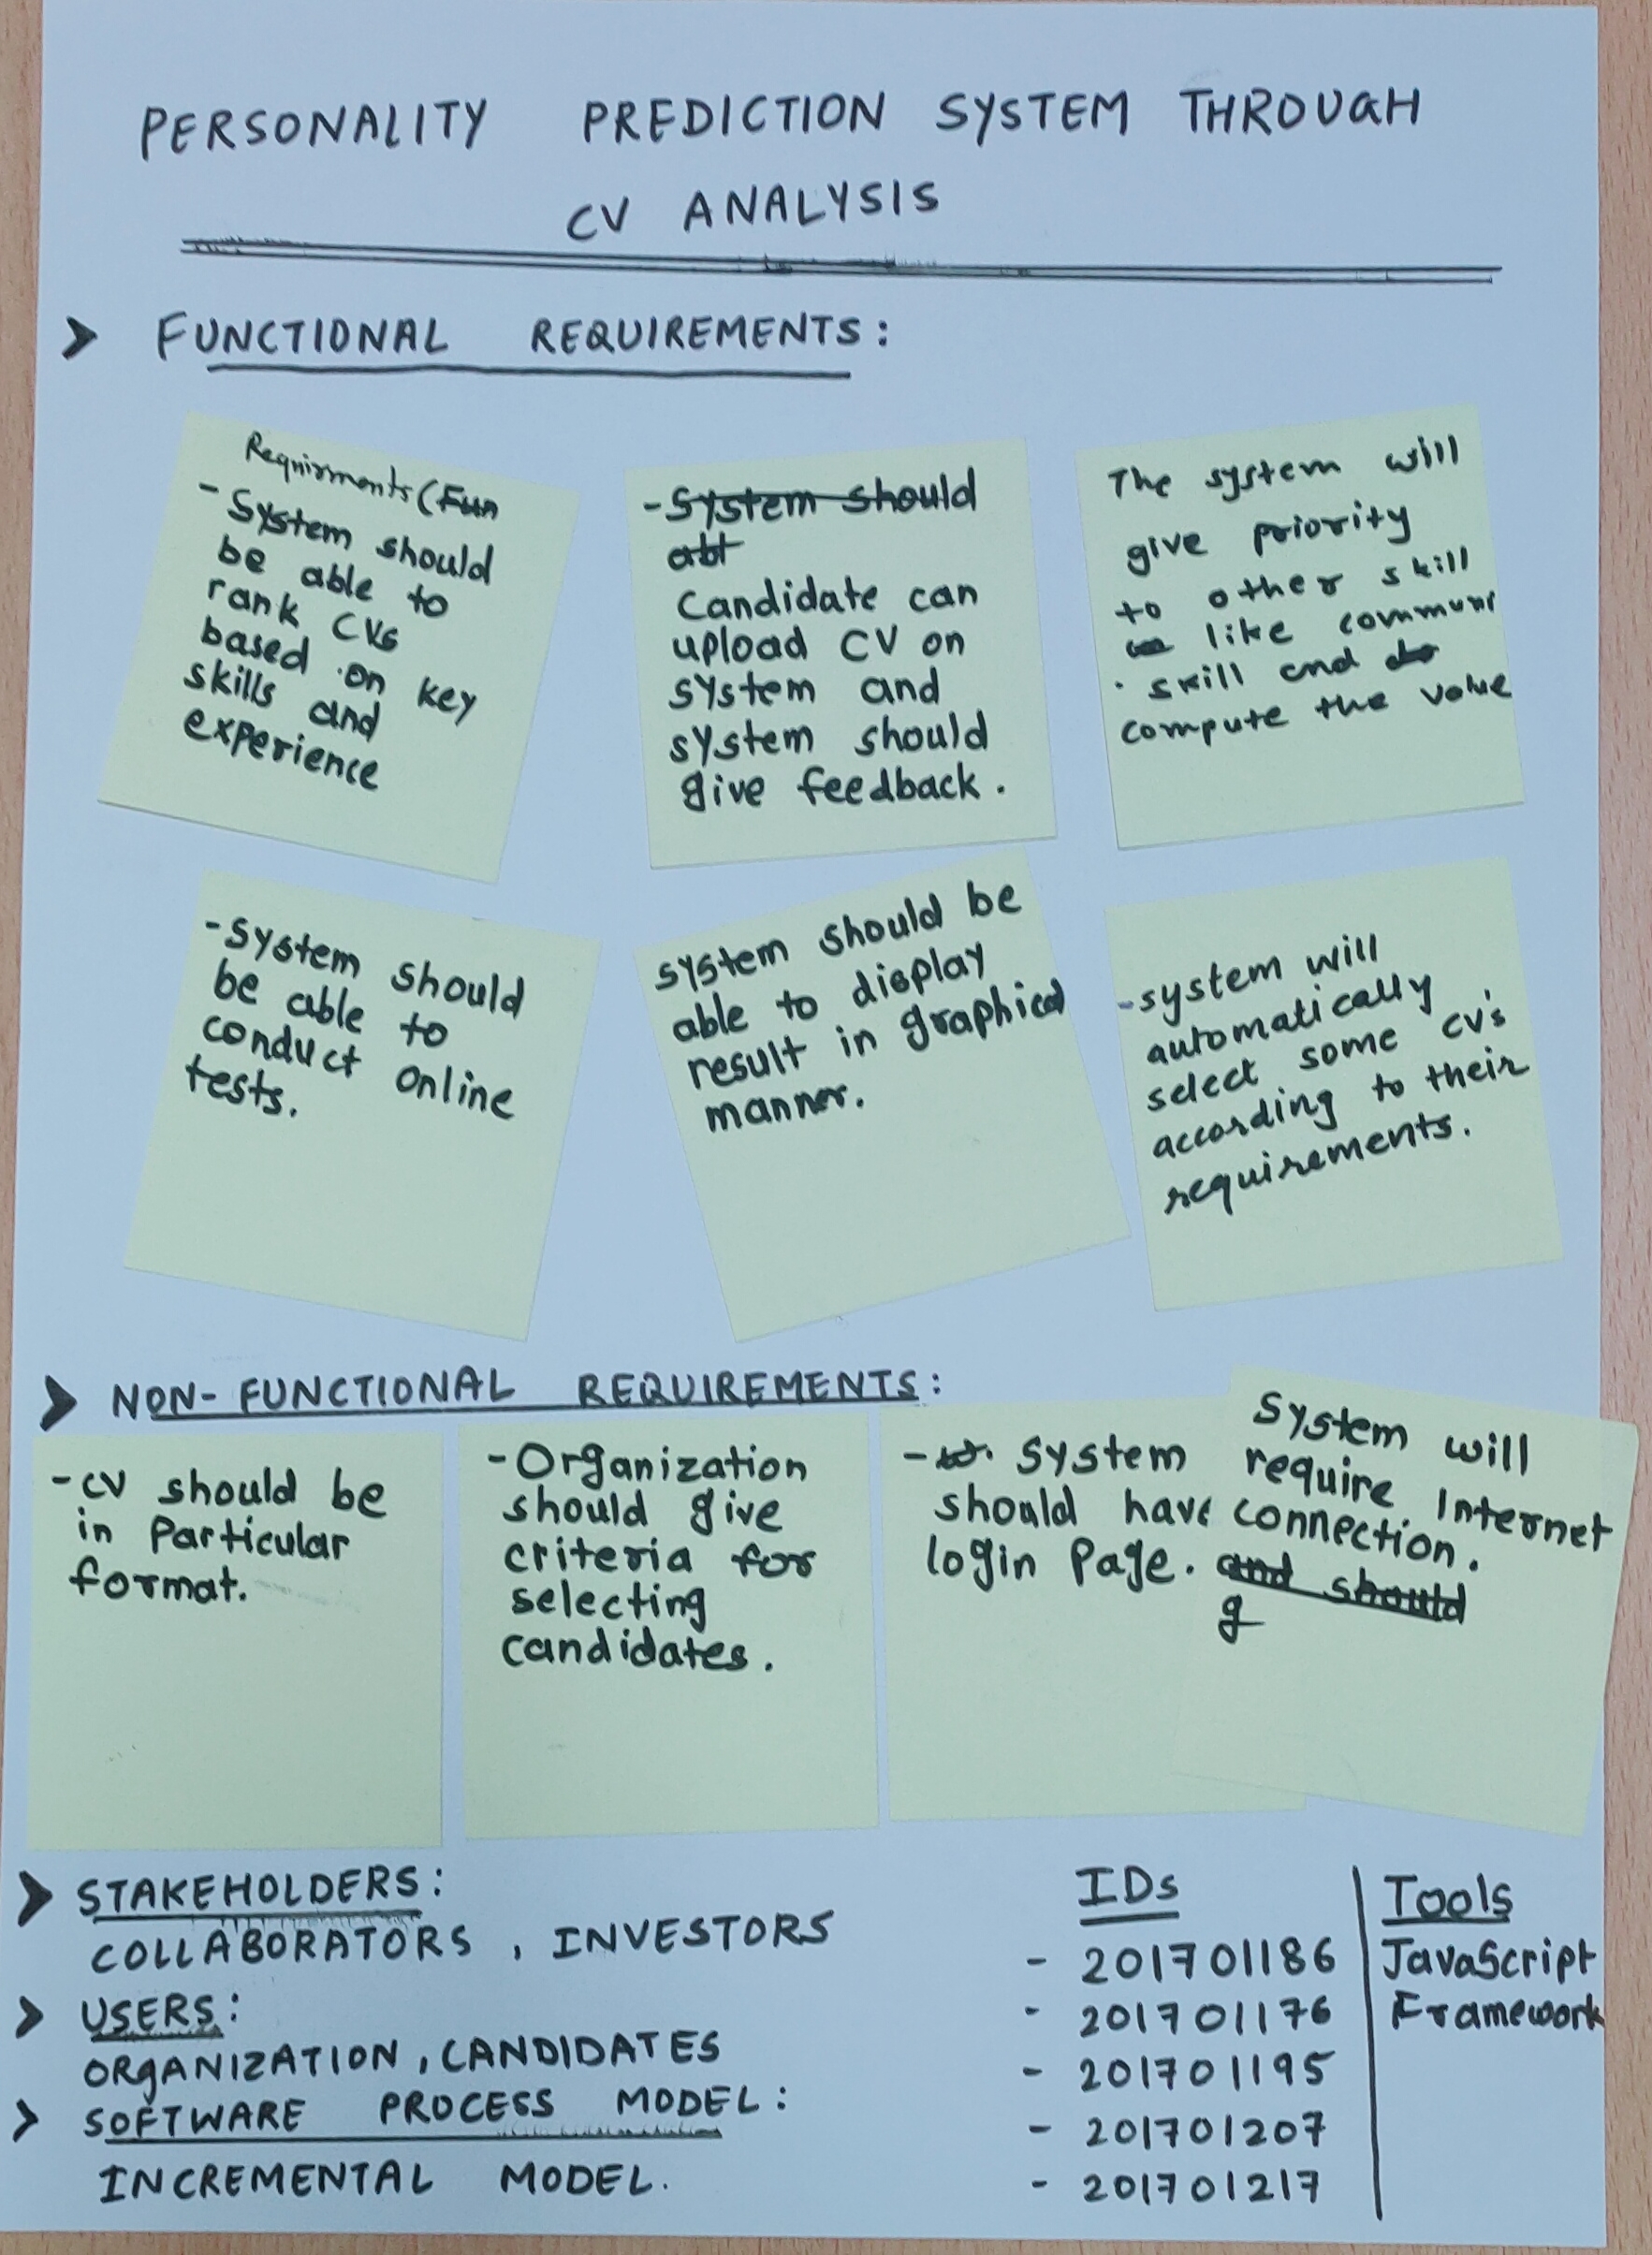 PERSONALITY PREDICTION SYSTEM THROUGH
CV ANALYSIS
FUNCTIONAL REQUIREMENTS:
Requirments (Fun
- System should
be able to
rank CVs
based on key
skills and
experience
- System should
abt
Candidate can
upload CV on
system and
system should
give feedback.
The system will
give priority
to other skill
like communi
skill and
compute the value
- System should
be able to
conduct online
tests.
system should be
able to display
result in graphical
manner.
- system will
automatically
select some cv's
according to their
requirements.
NON-FUNCTIONAL REQUIREMENTS:
- CV should be
in Particular
format.
- Organization
should give
criteria for
selecting
candidates.
- System
should have
login Page.
System will
require Internet
connection.
and should
g
STAKEHOLDERS:
COLLABORATORS, INVESTORS
USERS:
ORGANIZATION, CANDIDATES
SOFTWARE PROCESS MODEL:
INCREMENTAL MODEL.
IDs
- 201701186
- 201701176
- 201701195
- 201701207
- 201701217
Tools
JavaScript
Framework